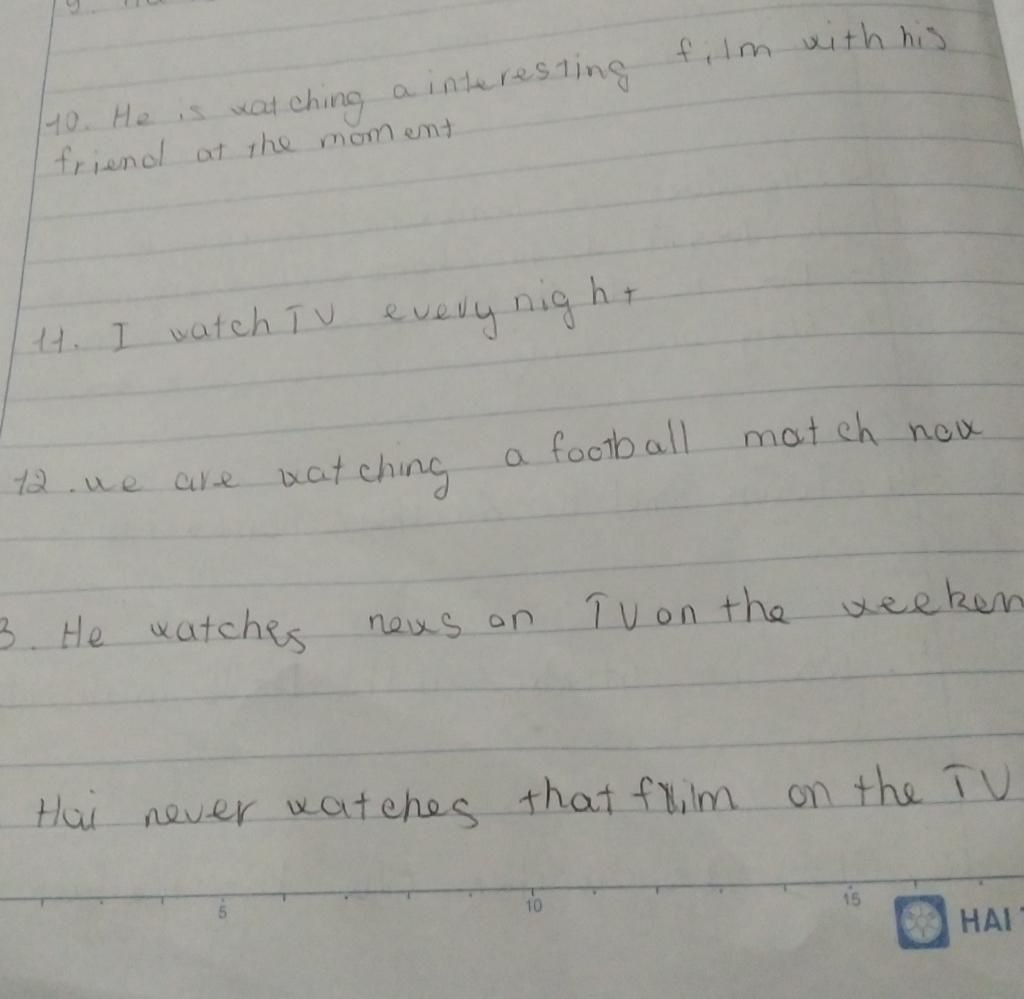 9.
10. He is watching a interesting film with his
friend at the moment
11. I watch TV every night
12. we are watching a football match now
3. He watches news on TV on the weeken
Hai never watches that film on the TV
5 10 15
HAI